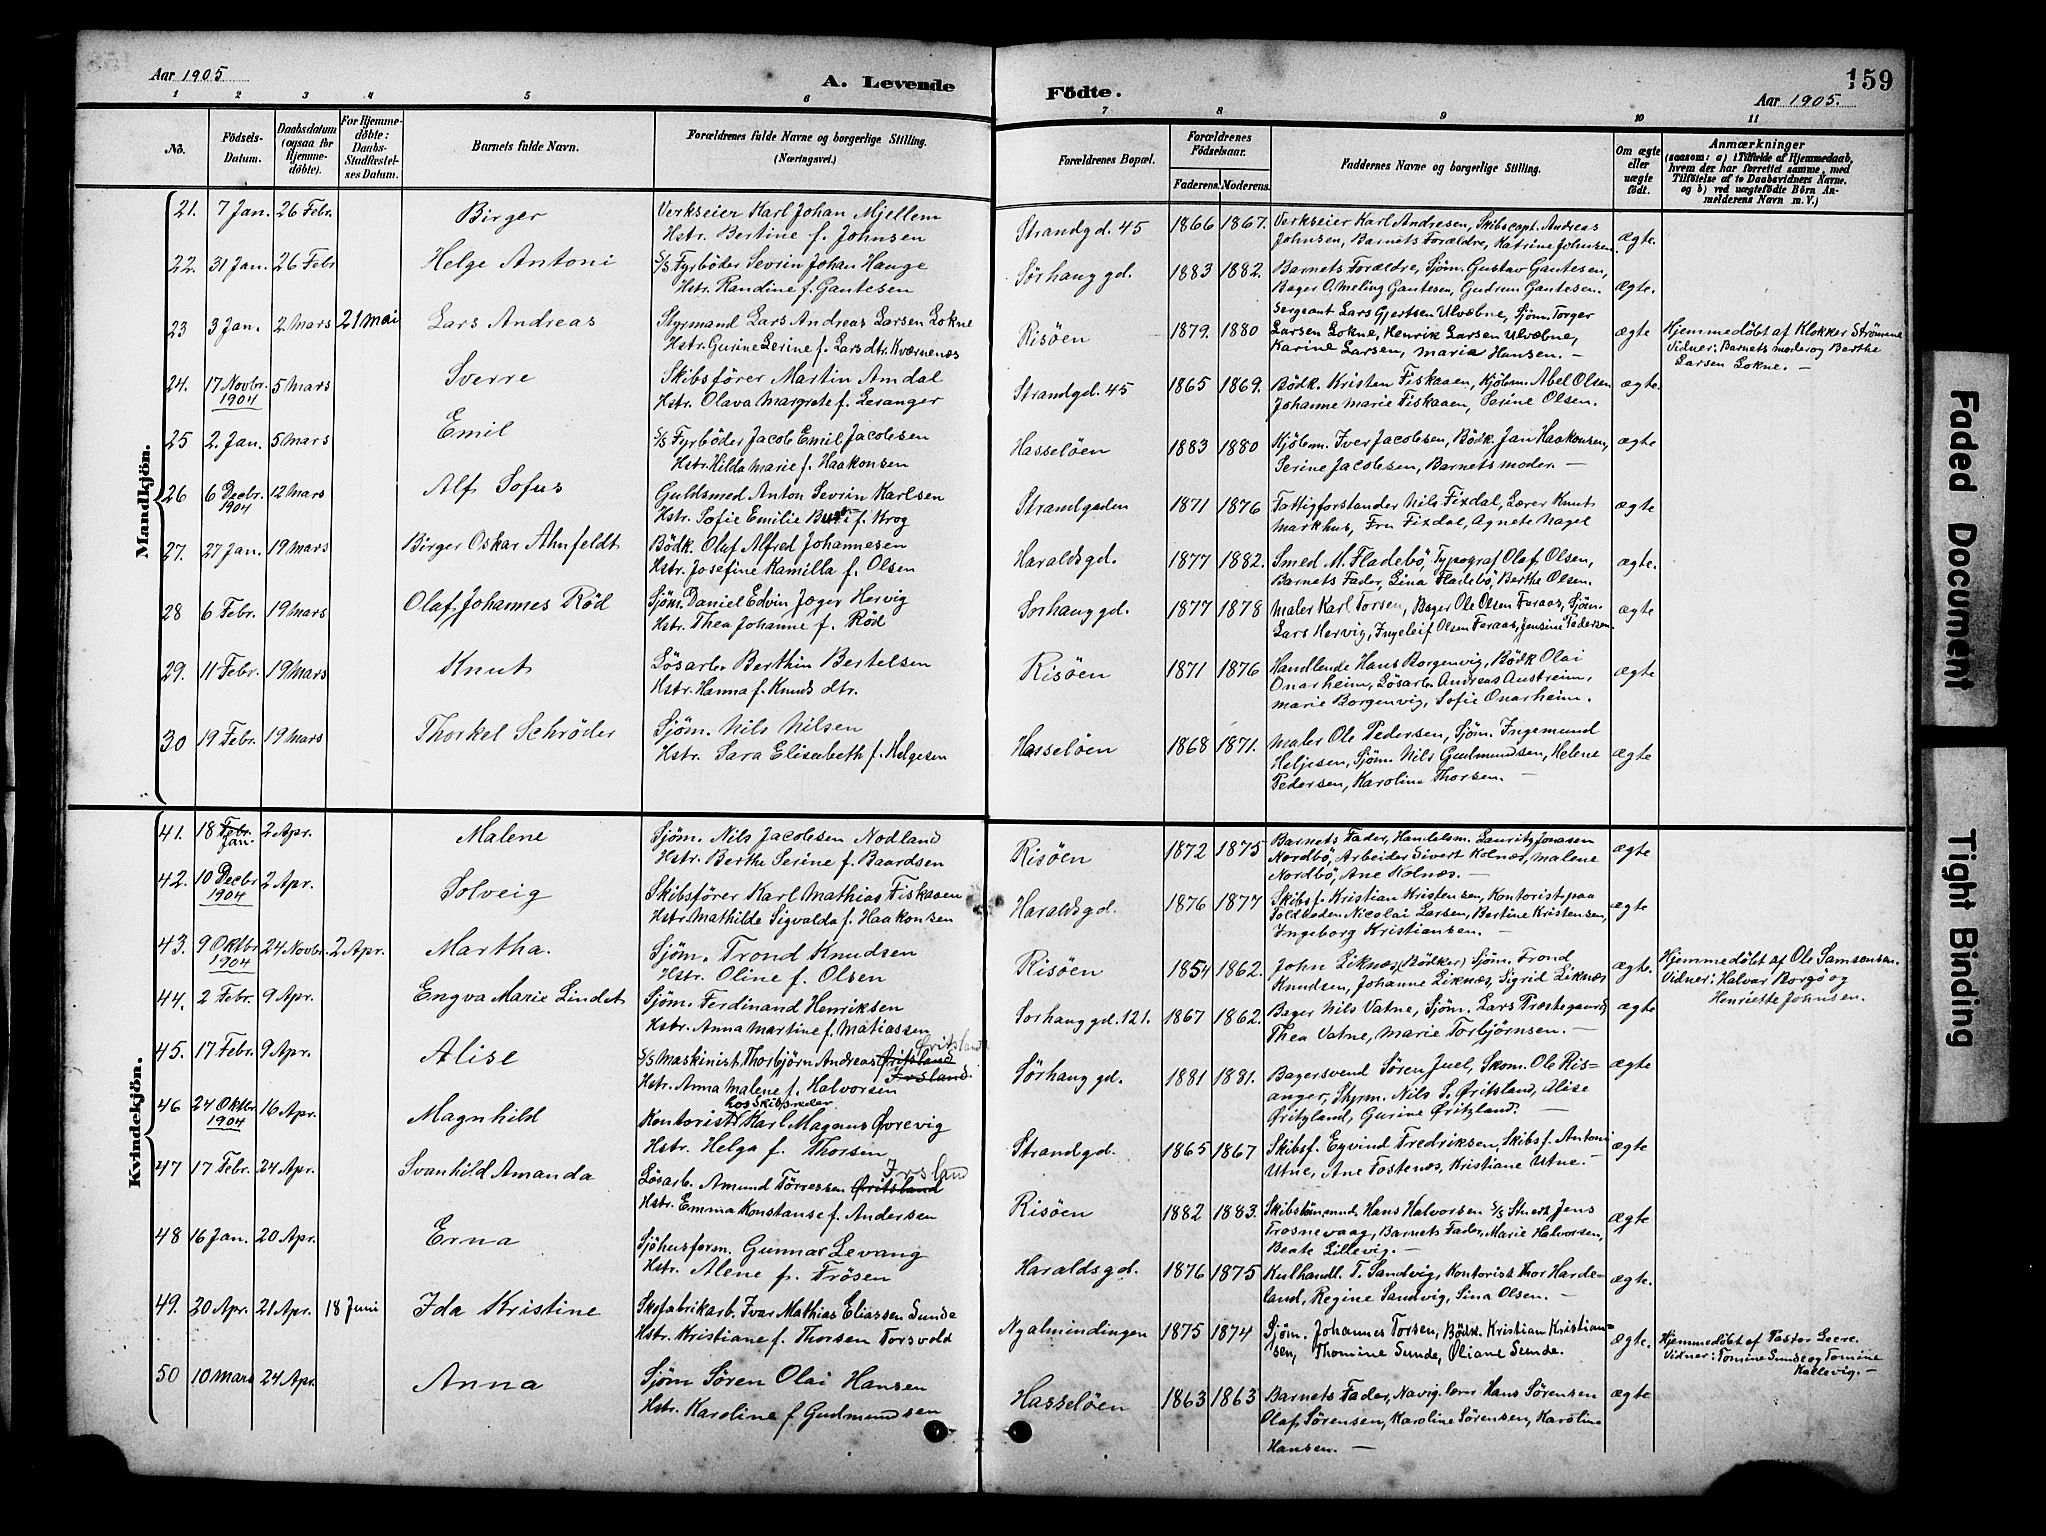 Aar 1905
A. Levende
Födte.
159
Aar 1905.
1 2 3 4 5 6 7 8 9 10 11
No.
Födsels-Datum.
Daabsdatum (ogsaa for Hjemme-döbte).
For Hjemme-döbte: Daabs-Stadfæstel-ses Datum.
Barnets fulde Navn.
Forældrenes fulde Navne og borgerlige Stilling. (Næringsvei.)
Forældrenes Bopæl.
Forældrenes Födselsaar.
Faderens. Moderens.
Faddernes Navne og borgerlige Stilling.
Om ægte eller uægte födt.
Anmærkninger
(saasom: a) i Tilfælde af Hjemmedaab, hvem der har forrettet samme, med Tilföielse af to Daabsvidners Navne, og b) ved uægtefödte Börn An-melderens Navn m. V.)
Mandkjön.
21. 7 Jan. 26 Febr. Birger
Verkseier Karl Johan Mjellem
Hstr. Bertine f. Johnsen
Strandgd. 45 1866 1867.
Verkseier Karl Andresen, Skibscapt. Andreas
Johnsen, Barnets Forældre, Katrine Johnsen
ægte.
22. 31 Jan. 26 Febr Helge Antoni
S/S Fyrböder Sevrin Johan Hauge
Hstr. Randine f. Gautesen
Sørhauggd. 1883 1882.
Barnets Forældre, Sjöm. Gustav Gautesen,
Bager O. Meling Gautesen, Gudrun Gautesen.
ægte.
23 3 Jan. 2 Mars 21 Mai Lars Andreas
Styrmand Lars Andreas Larsen Lokne
Hstr. Gurine Serine f. Larsdtr. Kværnenæs
Risöen 1879. 1880
Sergeant Lars Gjertsen Ulvæbne, Sjöm. Torger
Larsen Lokne, Henrik Larsen Ulvæbne,
Karine Larsen, Marie Hansen. —
ægte
Hjemmedöbt af Klokker Strømme
Vidner: Barnets moder og Berthe
Larsen Lokne. —
24. 17 Novbr. 1904 5 Mars Sverre
Skibsförer Martin Amdal
Hstr. Olava Margrete f. Leranger
Strandgd. 45 1865 1869.
Bödk. Kristen Fiskaaen, Kjöbm. Abel Olsen
Johanne Marie Fiskaaen, Serine Olsen.
ægte.
25 2. Jan. 5 Mars Emil
S/S Fyrböder Jacob Emil Jacobsen
Hstr. Hilda Marie f. Haakonsen
Hasselöen 1883 1880
Kjöbm. Iver Jacobsen, Bödk. Jan Haakonsen,
Serine Jacobsen, Barnets moder. —
ægte
26 6 Decbr. 1904 12 Mars Alf Sofus
Guldsmed Anton Sevrin Karlsen
Hstr. Sofie Emilie f. Krog
Strandgaden 1871 1876
Fattigforstander Nils Fixdal, Lærer Knut
Markhus, Fru Fixdal, Agnete Nagel
ægte
27. 27 Jan. 19 Mars Birger Oskar Ahnfeldt
Bödk. Olaf Alfred Johannesen
Hstr. Josefine Kamilla f. Olsen
Haraldsgd. 1877 1882.
Smed M. Fladebö, Typograf Olaf Olsen,
Barnets Fader, Lina Fladebö, Berthe Olsen.
ægte.
28 6 Febr. 19 Mars Olaf Johannes Röd
Sjöm. Daniel Edvin Jæger Hervig
Hstr. Thea Johanne f. Röd
Sorhauggd. 1877 1878
Maler Karl Torsen, Bager Ole Olsen Faraas, Sjöm.
Lars Hervig, Ingeleif Olsen Faraas, Jensine Pedersen.
ægte
29. 11 Febr. 19 Mars Knut
Lösarb. Berthin Bertelsen
Hstr. Hanna f. Knuds dtr.
Risöen 1871 1876
Handlende Hans Borgenvig, Bödk Olai
Onarheim, Lösarb. Andreas Austreim,
Marie Borgenvig, Sofie Onarheim.
ægte
30 19 Febr. 19 Mars Thorkel Schröder
Sjöm. Nils Nilsen
Hstr. Sara Elisabeth f. Helgesen
Hasselöen 1868 1871.
Maler Ole Pedersen, Sjöm. Ingemund
Heljesen, Sjöm. Nils Gudmundsen, Helene
Pedersen, Karoline Thorsen. —
ægte
Kvindekjön.
41. 18 Febr. Jan. 2 Apr. Malene
Sjöm. Nils Jacobsen Nodland
Hstr. Berthe Serine f. Baardsen
Risöen 1872 1875
Barnets Fader, Handelsm. Lauritz Jonasen
Nordbö, Arbeider Sivert Kolnæs, Malene
Nordbö, Ane Kolnæs. —
ægte
42. 10 Decbr 1904 2 Apr. Solveig
Skibsförer Karl Mathias Fiskaaen
Hstr. Mathilde Sigvalda f. Haakonsen
Haraldsgd. 1876 1877
Skibsf. Kristian Kristensen, Kontorist paa
Toldboden Nicolai Larsen, Bertine Kristensen,
Ingeborg Kristiansen. —
ægte
43. 9 Oktbr 1904 24 Novbr. 2 Apr. Martha.
Sjöm. Trond Knudsen
Hstr. Oline f. Olsen
Risöen 1854 1862.
John Liknæs, (Bödker) Sjöm. Trond
Knudsen, Johanne Liknæs, Sigrid Liknæs
ægte.
Hjemmedöbt af Ole Samsonsen.
Vidner: Halvar Borgö og
Henriette Johnsen.
44. 2 Febr. 9 Apr. Engva Marie Lindet
Sjöm. Ferdinand Henriksen
Hstr. Anna Martine f. Matiassen
Sorhauggd. 121. 1867 1862.
Bager Nils Vatne, Sjöm. Lars Præstegaard,
Thea Vatne, Marie Torbjörnsen. —
ægte
45. 17 Febr. 9 Apr. Alise
Øritsland
S/S Maskinist Thorbjörn Andreas Øritsland
Irsland.
Hstr. Anna Malene f. Halvorsen
Sørhauggd. 1881 1881.
Bagersvend Sören Juel, Skom. Ole Ris-
anger, Styrm. Nils S. Øritsland, Alise
Øritzland, Gurine Øritzland. —
ægte
46 24 Oktbr 1904 16 Apr. Magnhild
hos Skibsreder
Kontorist Karl Magnus Øvrevig
Hstr. Helga f. Thorsen
Strandgd. 1865 1867
Skibsf. Eyvind Fredriksen, Skibsf. Antoni
Utne, Ane Fostenæs, Kristiane Utne. —
ægte
47 17 Febr. 24 Apr. Svanhild Amanda
Irsland
Lösarb. Amund Törressen Øritsland
Hstr. Emma Konstanse f. Andersen
Risöen 1882 1883.
Skibstömmd, Hans Halvorsen S/S Stuert Jens
Trosnevaag, Barnets Fader, Marie Halvorsen,
Beate Lillevig. —
ægte
48 16 Jan. 20 Apr. Erna
Sjöhusform. Gunnar Levang
Hstr. Alene f. Frösen
Haraldsgd. 1876 1875
Kulhandl. T. Sandvig, Kontorist Thor Harde-
land, Regine Sandvig, Sina Olsen. —
ægte.
49. 20 Apr. 21 Apr. 18 Juni Ida Kristine
Skofabrikarb. Ivar Mathias Eliassen Sunde
Hstr. Kristiane f. Thorsen Torsvold
Nyalmindingen 1875 1874
Sjöm. Johannes Torsen, Bödk. Kristian Kristian-
sen, Thomine Sunde, Oliane Sunde.
ægte.
Hjemmedöbt af Pastor Geere.
Vidner: Tomine Sunde og Tomine
Kallevig. —
50 10 Mars 24 Apr. Anna
Sjöm Sören Olai Hansen
Hstr. Karoline f Gudmundsen
Hasselöen 1863 1863
Barnets Fader, Navig. lærer Hans Sörensen
Olaf Sörensen, Karoline Sörensen, Karoline
Hansen. —
ægte
Faded Document
Tight Binding